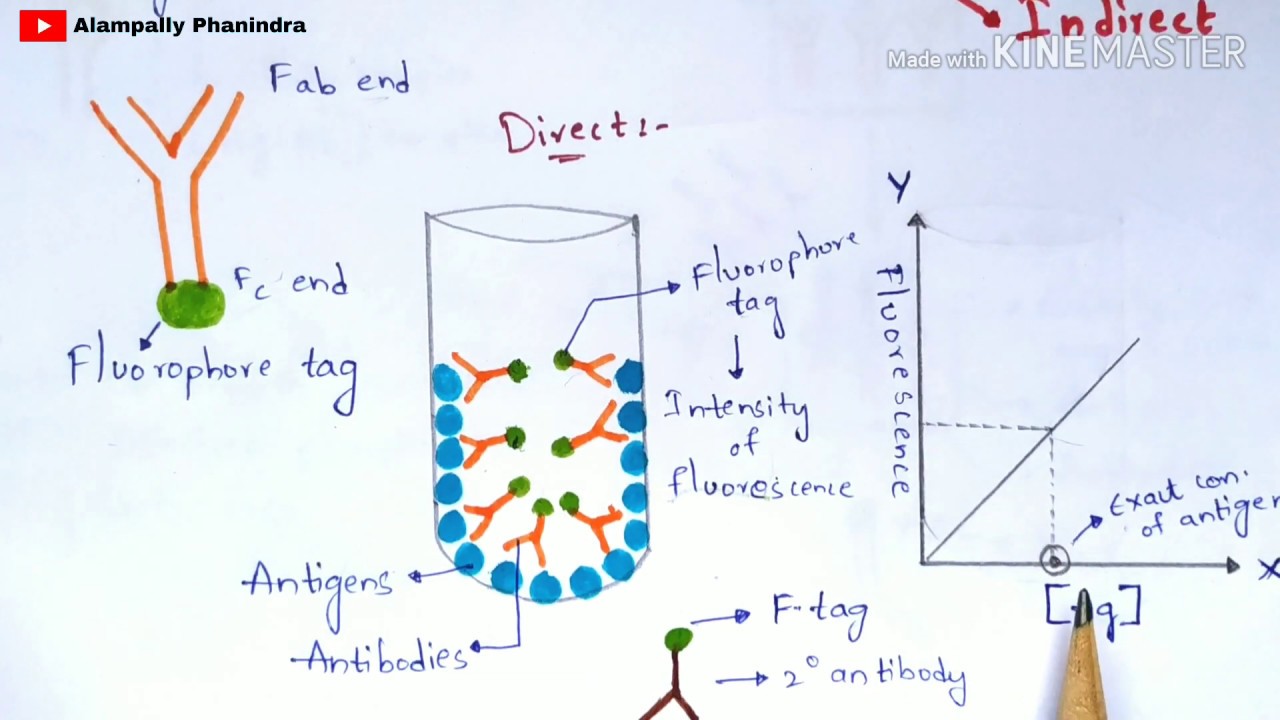 Alampally Phanindra
Indirect
Made with KINEMASTER
Fab end
Direct :-
Y
Fluorophore
tag
Fc end
Fluorescence
Fluorophore tag
Intensity
of
fluorescence
Exact con.
of antigen
X
Antigens
[Ag]
F-tag
Antibodies
2° antibody